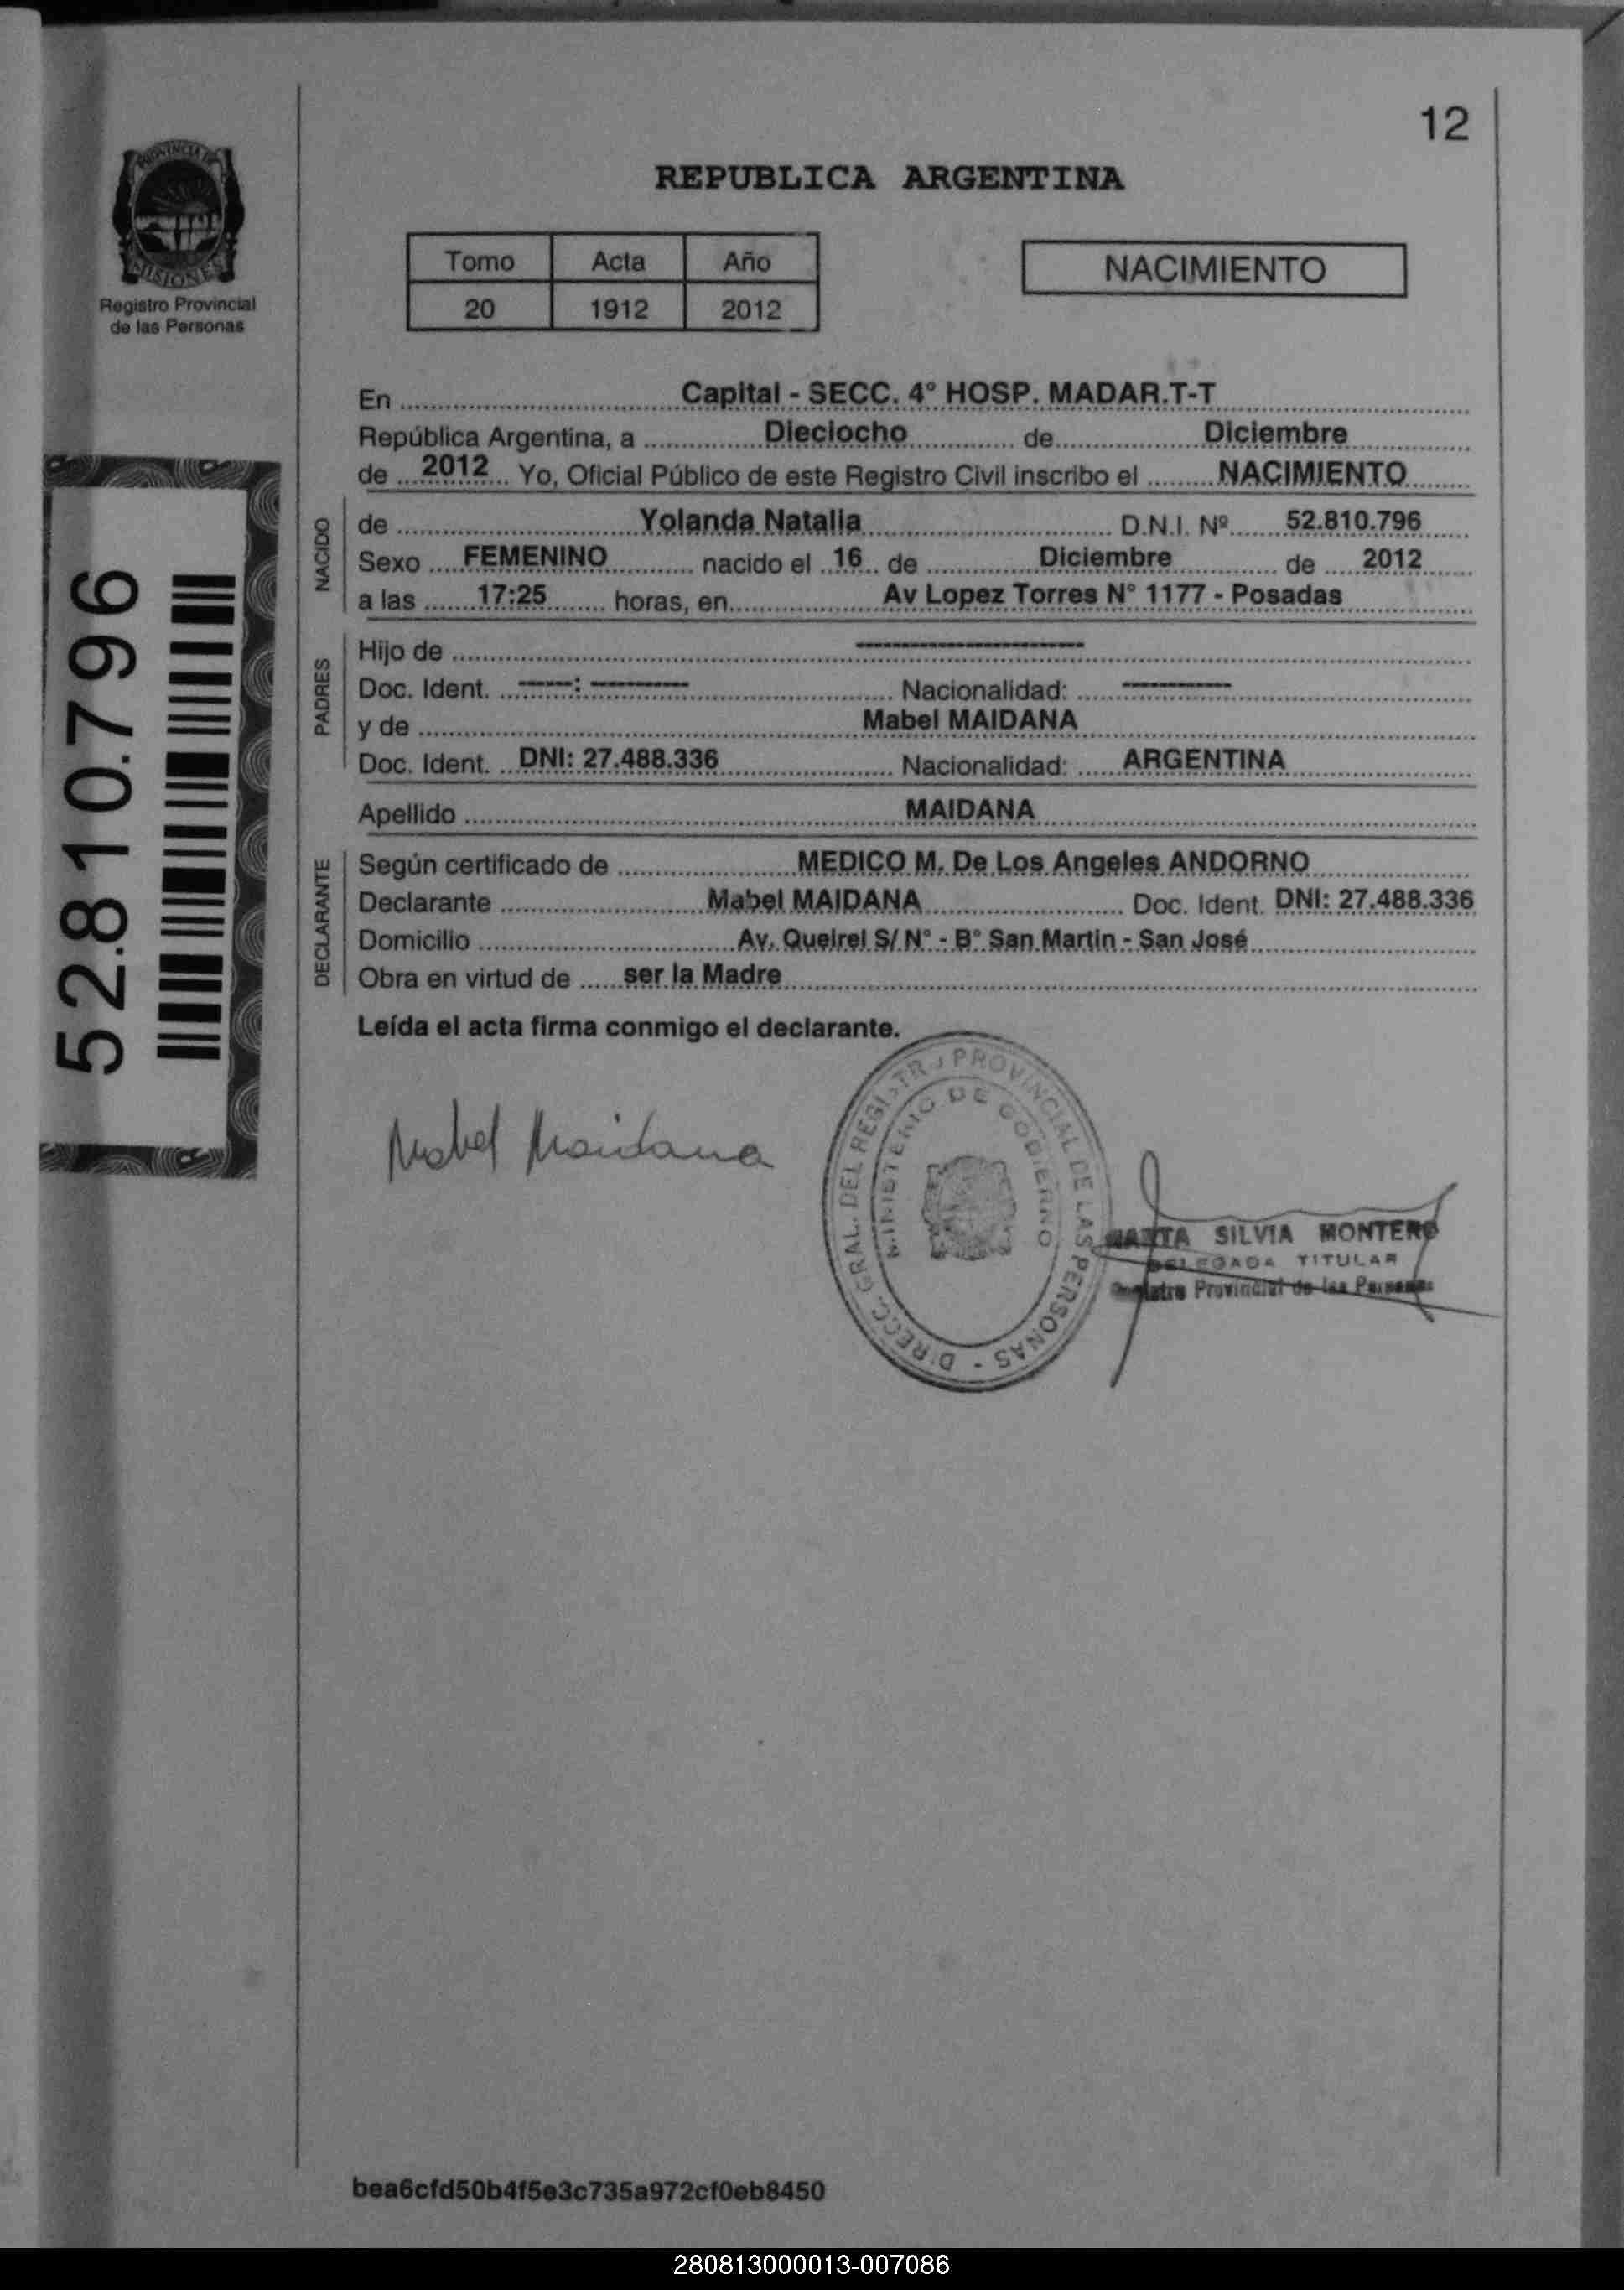 12
PROVINCIA DE
MISIONES
Registro Provincial
de las Personas
REPUBLICA ARGENTINA
Tomo Acta Año
20 1912 2012
NACIMIENTO
En Capital - SECC. 4° HOSP. MADAR.T-T
República Argentina, a Dieciocho de Diciembre
de 2012 Yo, Oficial Público de este Registro Civil inscribo el NACIMIENTO
NACIDO
de Yolanda Natalia D.N.I. Nº 52.810.796
Sexo FEMENINO nacido el 16 de Diciembre de 2012
a las 17:25 horas, en Av Lopez Torres N° 1177 - Posadas
PADRES
Hijo de ----------
Doc. Ident. -----: ---------- Nacionalidad: ----------
y de Mabel MAIDANA
Doc. Ident. DNI: 27.488.336 Nacionalidad: ARGENTINA
Apellido MAIDANA
DECLARANTE
Según certificado de MEDICO M. De Los Angeles ANDORNO
Declarante Mabel MAIDANA Doc. Ident. DNI: 27.488.336
Domicilio Av. Queirel S/ N° - B° San Martin - San José
Obra en virtud de ser la Madre
Leída el acta firma conmigo el declarante.
52.810.796
Mabel Maidana
DIRECC. GRAL. DEL REGISTRO PROVINCIAL DE LAS PERSONAS -
MINISTERIO DE GOBIERNO
MARTA SILVIA MONTERO
DELEGADA TITULAR
Registro Provincial de las Personas
bea6cfd50b4f5e3c735a972cf0eb8450
280813000013-007086